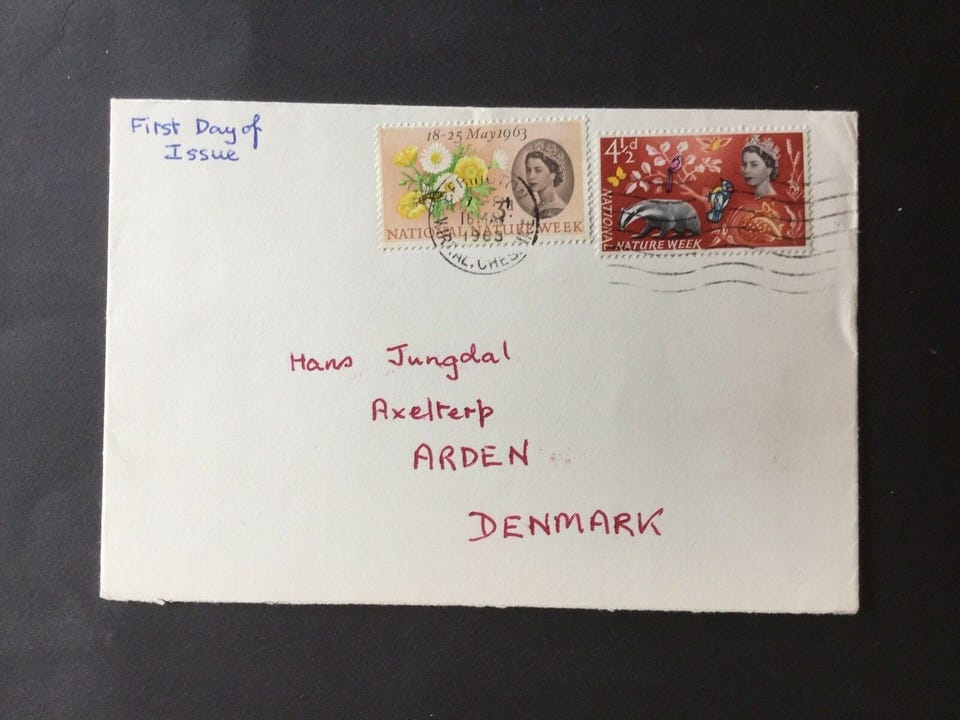 First Day of
Issue
18-25 May 1963
3d
NATIONAL NATURE WEEK
4½d
NATIONAL
NATURE WEEK
16 MAY
1963
Hans Jungdal
Axelterp
ARDEN
DENMARK